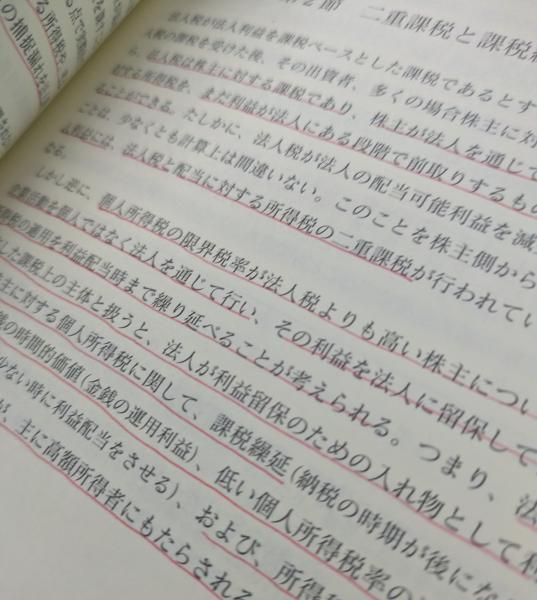 第2節 二重課税と課税
法人税が法人利益を課税ベースとした課税であるとす
人税の課税を受けた後、その出資者、多くの場合株主に対
ら、法人税は株主に対する課税であり、株主が法人を通じて
対する所得税を、まだ利益が法人にある段階で前取りするもの
ることができる。たしかに、法人税が法人の配当可能利益を減
ことは、少なくとも計算上は間違いない。このことを株主側から
人利益には、法人税と配当に対する所得税の二重課税が行われてい
なる。
しかし逆に、個人所得税の限界税率が法人税よりも高い株主につい
企業活動を個人ではなく法人を通じて行い、その利益を法人に留保して
税の適用を利益配当時まで繰り延べることが考えられる。つまり、法
した課税上の主体と扱うと、法人が利益留保のための入れ物として利
主に対する個人所得税に関して、課税繰延(納税の時期が後にな
銭の時間的価値(金銭の運用利益)、低い個人所得税率の
少ない時に利益配当をさせる)、および、所得
が、主に高額所得者にもたらされる
る所得税を
の捕捉漏れ